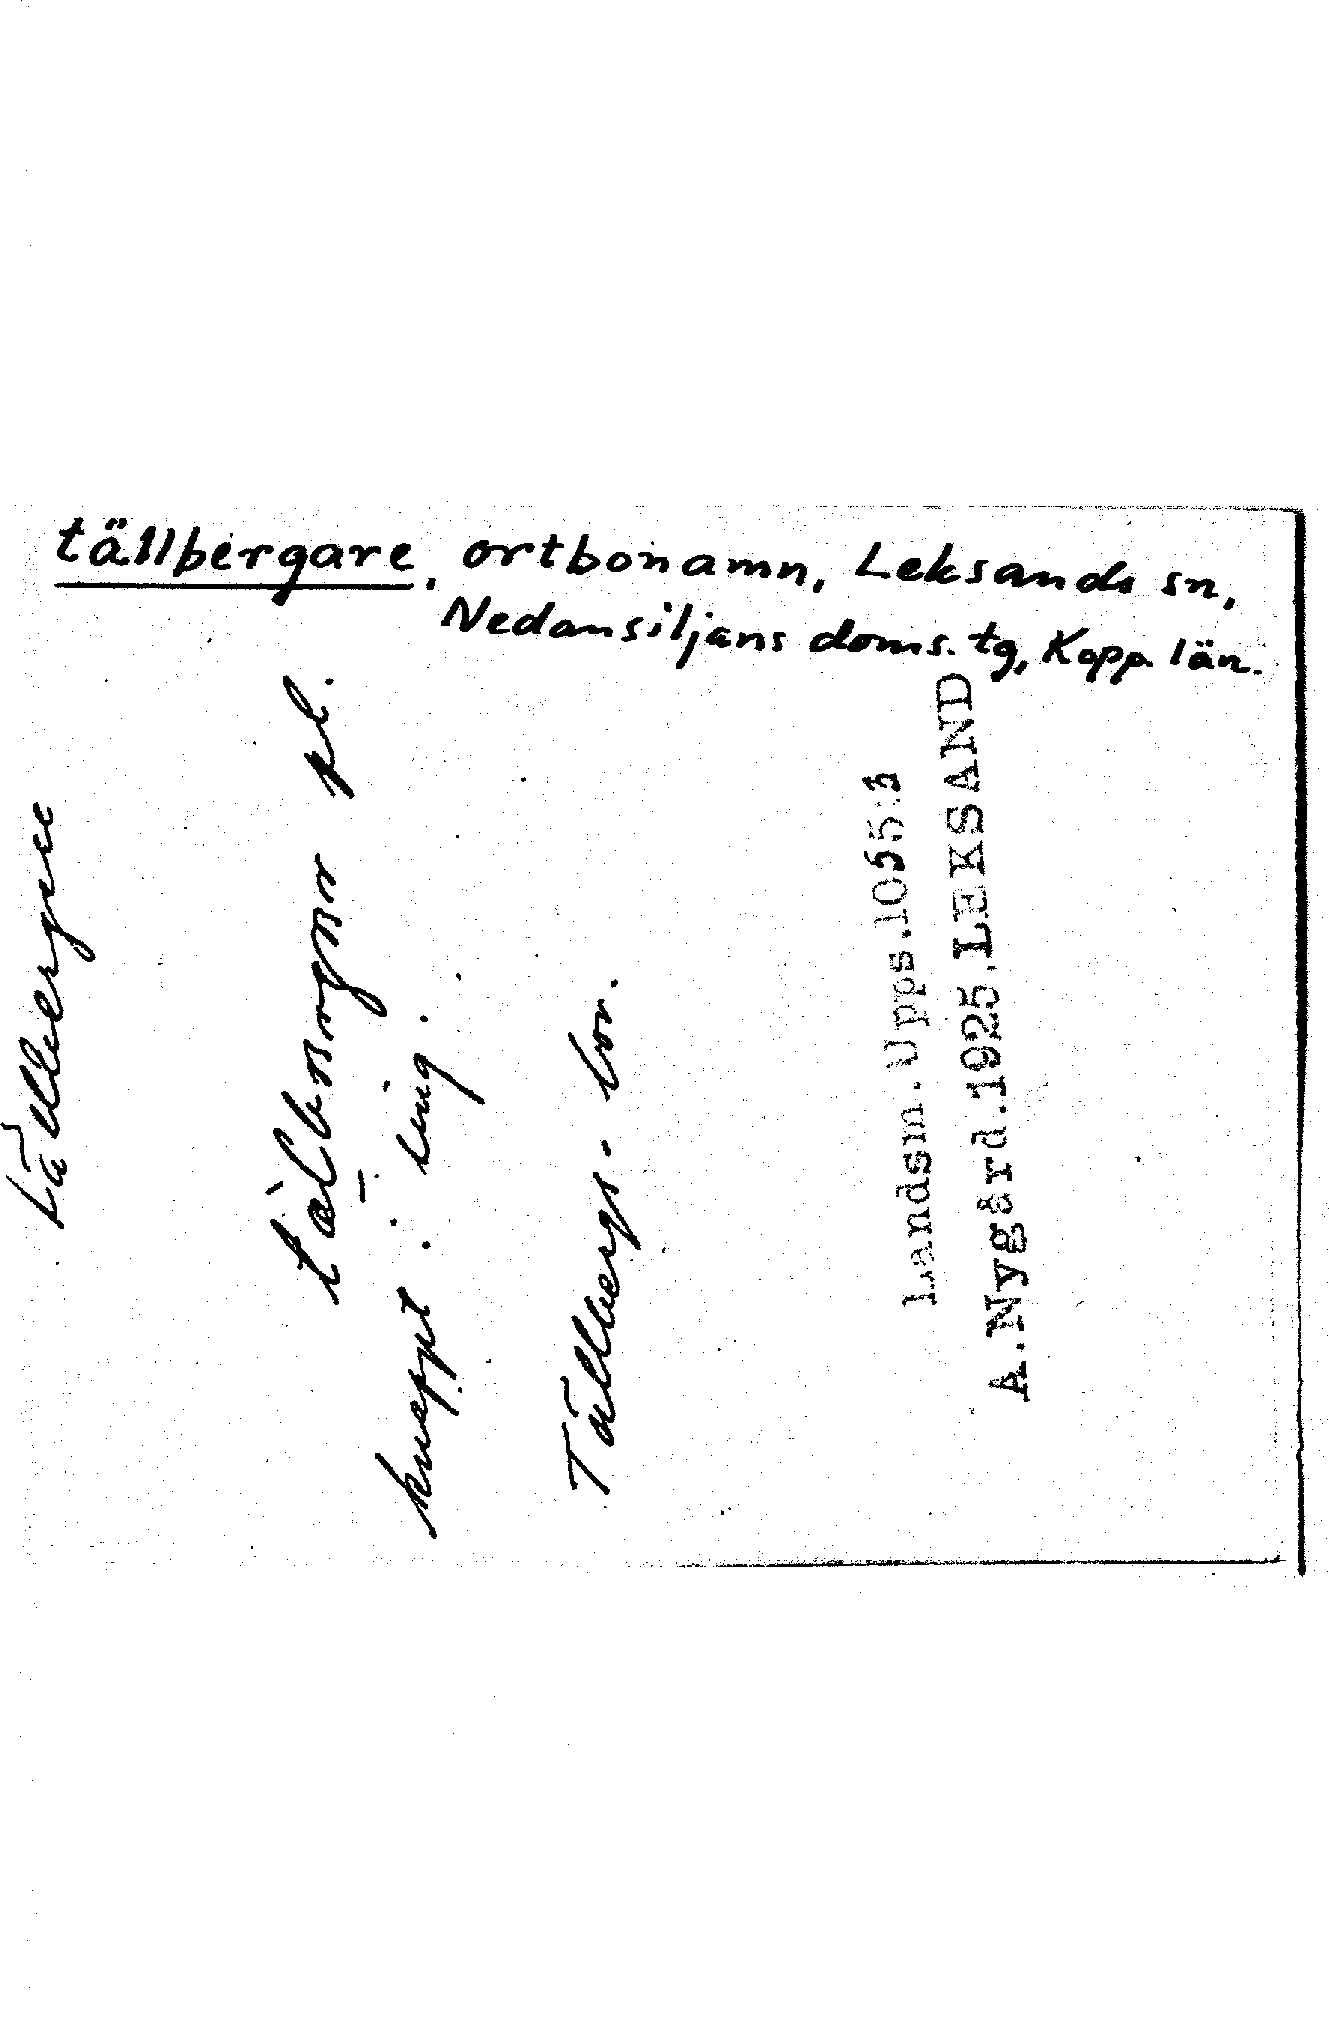 tällbergare, ortbonamn, Leksands sn,
Nedansiljans doms. tg, Kopp. län.
tällbergare
pl.
knappt i ung.
Tällbergs-bor.
Landsm. Upps. 1055:3
A. Nygård. 1925. LEKSAND